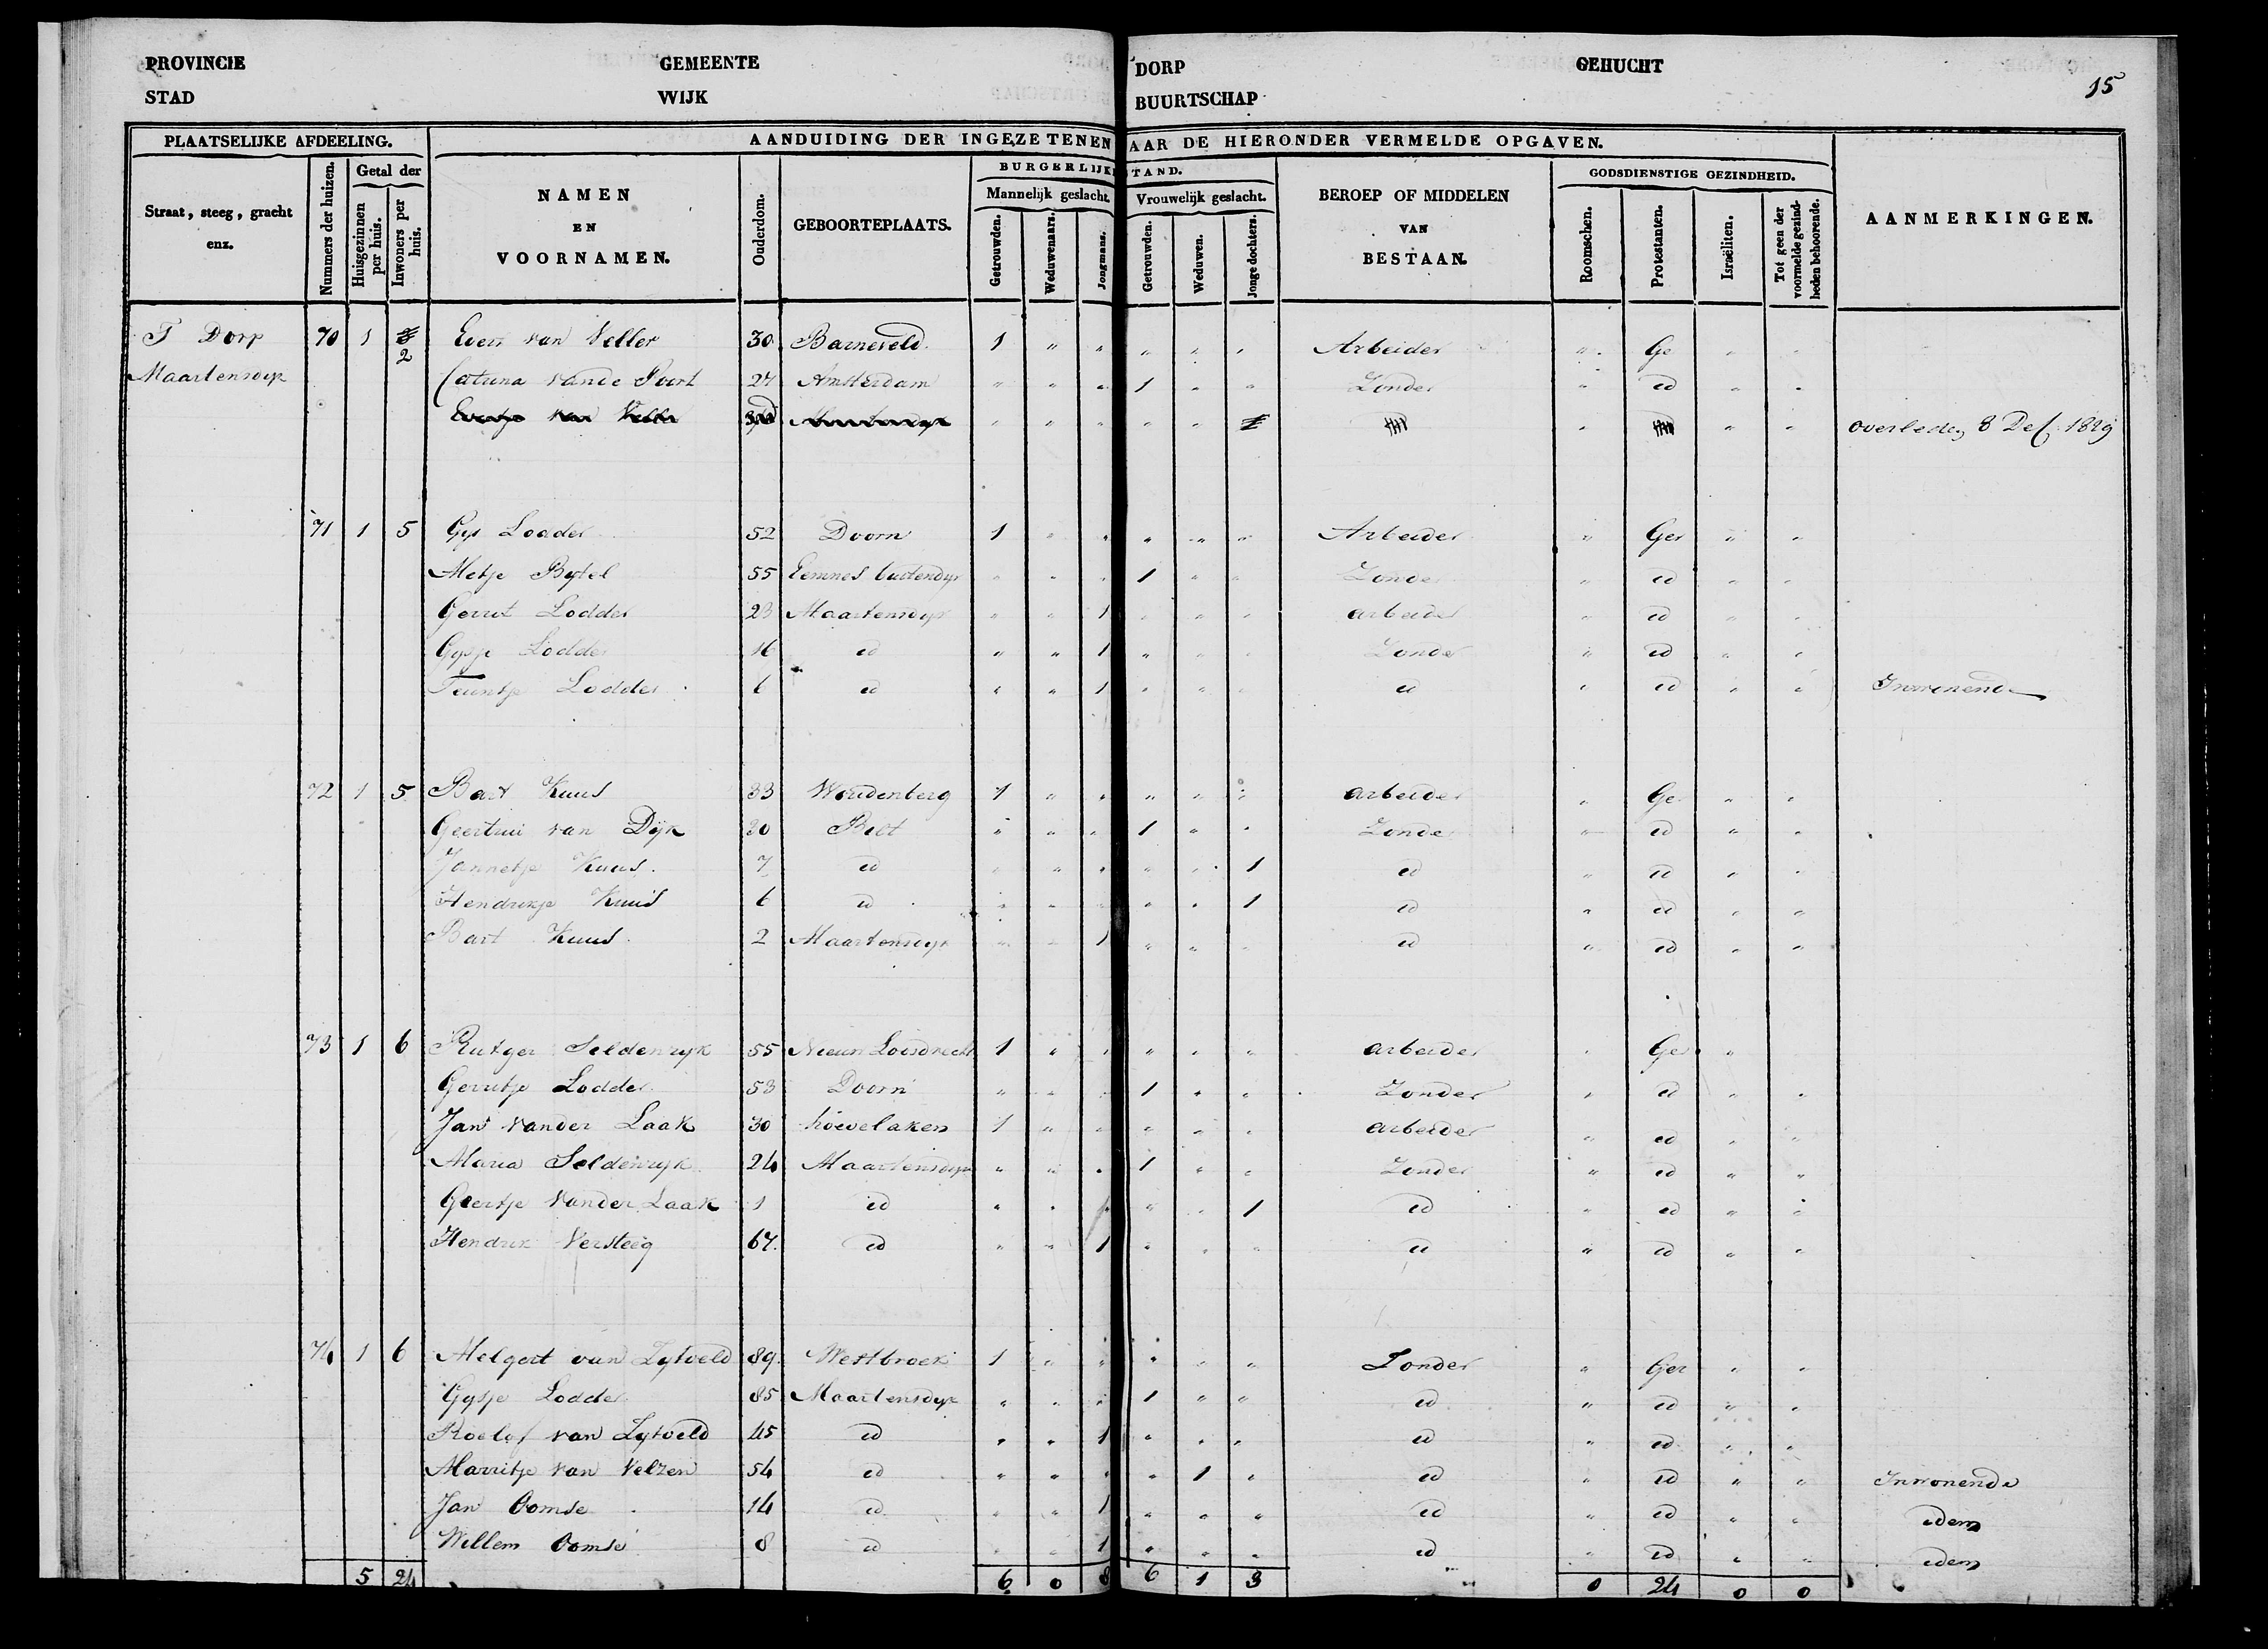 PROVINCIE GEMEENTE DORP GEHUCHT
STAD WIJK BUURTSCHAP 15
PLAATSELIJKE AFDEELING. AANDUIDING DER INGEZETENEN AAR DE HIERONDER VERMELDE OPGAVEN.
Straat, steeg, gracht enz. Nummers der huizen. Getal der Huisgezinnen per huis. Inwoners per huis. NAMEN EN VOORNAMEN. Ouderdom. GEBOORTEPLAATS. BURGERLIJKE STAND. Mannelijk geslacht. Getrouwden. Weduwenaars. Jongmans. Vrouwelijk geslacht. Getrouwden. Weduwen. Jonge dochters. BEROEP OF MIDDELEN VAN BESTAAN. GODSDIENSTIGE GEZINDHEID. Roomschen. Protestanten. Israëliten. Tot geen der voormelde gezindheden behoorende. AANMERKINGEN.
T Dorp 70 1 2 Evert van Veller 30 Barneveld 1 " " " " " Arbeider " Ge " "
Maartensdyk Catrina vande Poort 27 Amsterdam " " " 1 " " Zonder " id " "
Evertje van Veller Maartensdyk " " " " " " " " overleden 8 Dec 1829
71 1 5 Gys Lodder 52 Doorn 1 " " " " " Arbeider " Ger " "
Metje Bytel 55 Eemnes buitendyk " " " 1 " " Zonder " id " "
Gerrit Lodder 23 Maartensdyk " " 1 " " " arbeider " id " "
Gysje Lodder 16 id " " 1 " " " Zonder " id " "
Teuntje Lodder 6 id " " 1 " " " id " id " " Inwonende
72 1 5 Bart Kuus 33 Woudenberg 1 " " " " " arbeider " Ge " "
Geertrui van Dijk 30 Bilt " " " 1 " " Zonder " id " "
Jannetje Kuus 7 id " " " " " 1 id " id " "
Hendrikje Kuus 6 id " " " " " 1 id " id " "
Bart Kuus 2 Maartensdyk " " 1 " " " id " id " "
73 1 6 Rutger Seldenryk 55 Nieuw Loosdrecht 1 " " " " " arbeider " Ger "
Gerritje Lodder 53 Doorn " " " 1 " " Zonder " id " "
Jan vander Laak 30 hoevelaken 1 " " " " " arbeider " id " "
Maria Seldenryk 24 Maartensdyk " " " 1 " " Zonder " id " "
Geertje vander Laak 1 id " " " " 1 id " id " "
Hendrik Versteeg 67 id " " 1 " " " id " id " "
74 1 6 Melgert van Zytveld 89 Westbroek 1 " " " " " Zonder " Ger " "
Gysje Lodder 85 Maartensdyk " " " 1 " " id " id " "
Roelof van Zytveld 45 id " " 1 " " " id " id " "
Marritje van Velzen 54 id " " " " 1 " id " id " " Inwonende
Jan Oomse 14 id " " 1 " " " id " id " " idem
Willem Oomse 8 id " " 1 " " " id " id " " idem
5 24 6 0 8 6 1 3 0 24 0 0